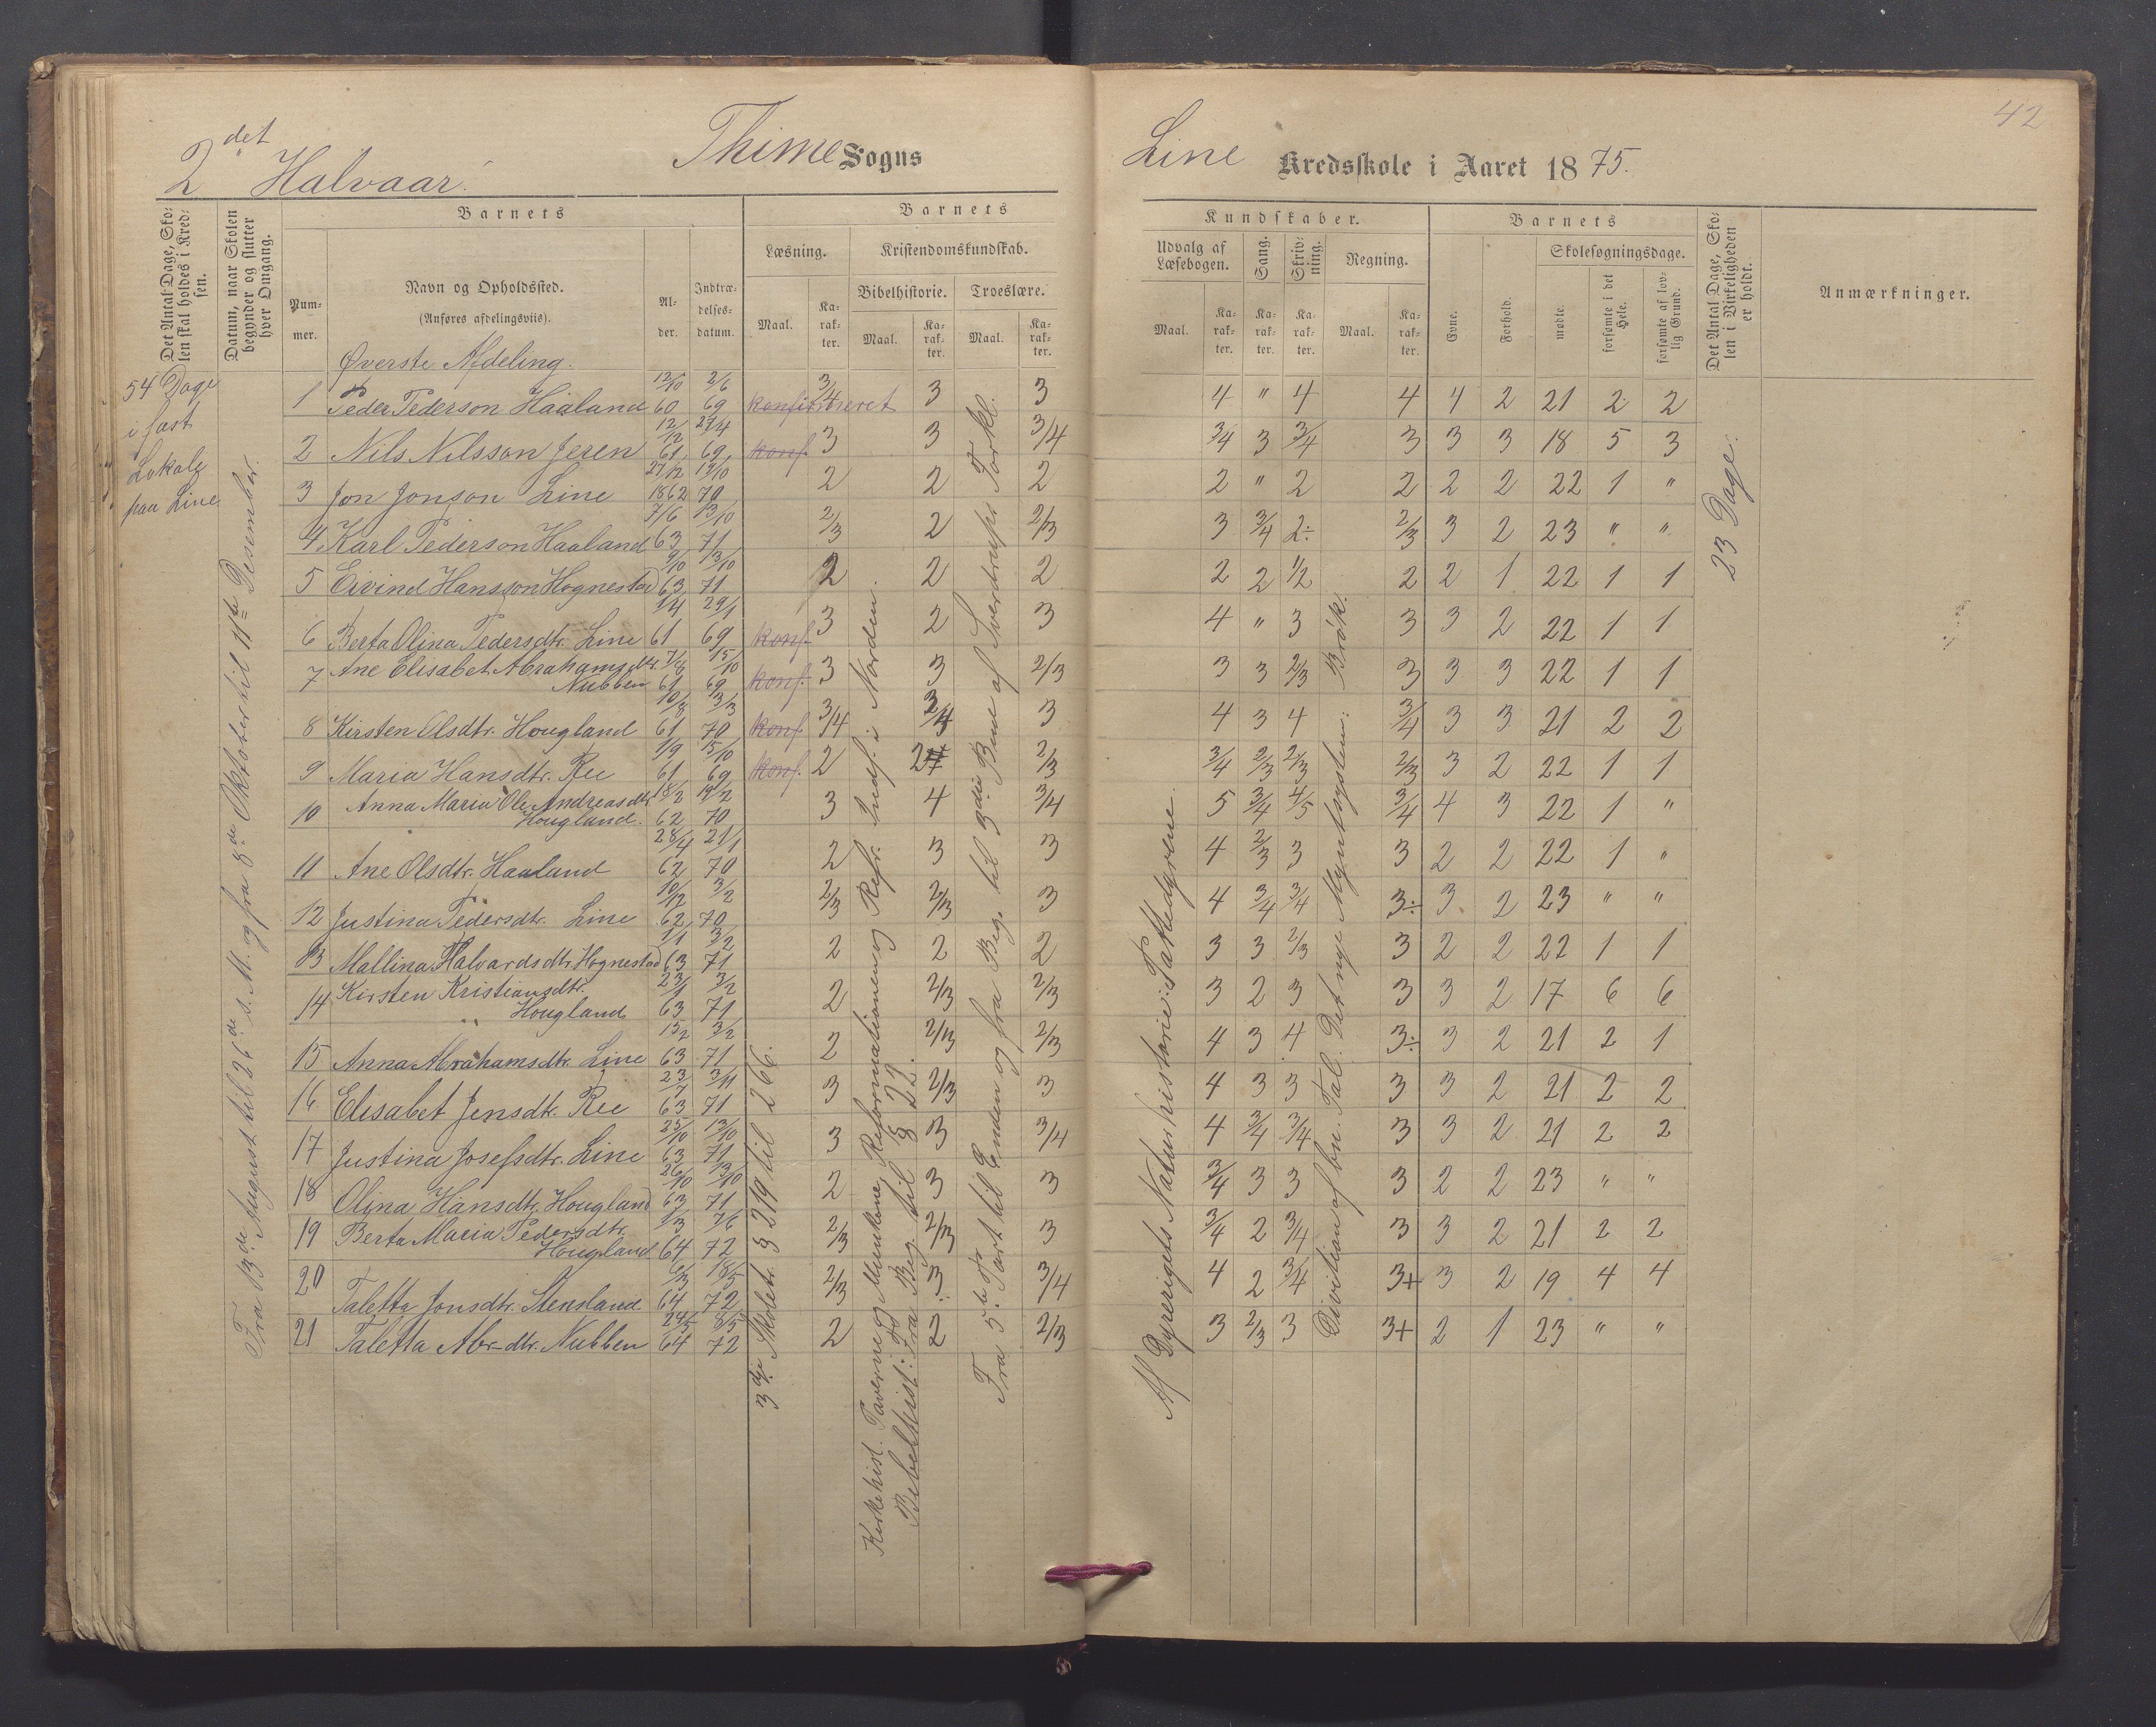 42
2det Halvaar.
Thime Sogns
Line Kredsskole i Aaret 1875.
Det Antal Dage, Skolen skal holdes i Kredsen.
Datum, naar Skolen begynder og slutter hver Omgang.
Barnets
Nummer.
Navn og Opholdssted.
(Anføres afdelingsviis).
Alder.
Indtrædelsesdatum.
Barnets
Læsning.
Kristendomskundskab.
Bibelhistorie.
Troeslære.
Maal.
Karakter.
Maal.
Karakter.
Maal.
Karakter.
Kundskaber.
Udvalg af Læsebogen.
Sang.
Skrivning.
Regning.
Maal.
Karakter.
Karakter.
Karakter.
Maal.
Karakter.
Barnets
Evne.
Forhold.
Skolesøgningsdage.
mødte.
forsømte i det Hele.
forsømte af lovlig Grund.
Det Antal Dage, Skolen i Virkeligheden er holdt.
Anmærkninger.
Øverste Afdeling.
54 Dage
i fast
Lokale
paa Line
Fra 13de August til 26de s. M. og fra 8de Oktober til 11te Desember.
1 Peder Pederson Haaland 12/10 60 2/6 69 konfirmeret 3/4 3 3 4 " 4 4 4 2 21 2 2
2 Nils Nilsson Jeren 12/12 61 27/4 69 konf. 3 3 3/4 3/4 3 3/4 3 3 3 18 5 3
3 Jon Jonson Line 27/12 1862 13/10 70 2 2 2 2 " 2 2 2 2 22 1 "
4 Karl Pederson Haaland 7/6 63 13/10 71 2/3 2 2/3 3 3/4 2÷ 2/3 3 2 23 " "
5 Eivind Hansson Hognestad 9/10 63 13/10 71 2 2 2 2 2 1/2 2 2 1 22 1 1
6 Berta Olina Pedersdtr. Line 1/4 61 29/1 69 konf. 3 2 3 4 " 3 3 3 2 22 1 1
7 Ane Elisabet Abrahamsdtr. Nubben 7/6 61 15/10 69 konf. 3 3 2/3 3 3 2/3 3 3 3 22 1 1
8 Kirsten Olsdtr. Hougland 10/8 61 3/3 70 konf. 3/4 3/4 3 4 3 4 3/4 3 3 21 2 2
9 Maria Hansdtr. Ree 1/9 61 15/10 69 konf. 2 2 2/3 3/4 2/3 2/3 2/3 3 2 22 1 1
10 Anna Maria Ole Andreasdtr. Hougland. 18/2 62 19/2 70 3 4 3/4 5 3/4 4/5 3/4 4 3 22 1 "
11 Ane Olsdtr. Haaland 28/4 62 21/1 70 2 3 3 4 2/3 3 3 2 2 22 1 "
12 Justina Pedersdtr. Line 10/12 62 3/2 70 2/3 2/3 3 4 3/4 3/4 3÷ 3 2 23 " "
13 Mallina Halvardsdtr. Hognestad 1/1 63 3/2 71 2 2 2 3 3 2/3 3 2 2 22 1 1
14 Kirsten Kristiansdtr. Hougland 23/1 63 3/2 71 2 2/3 2/3 3 2 3 3 3 2 17 6 6
15 Anna Abrahamsdtr. Line 15/2 63 3/2 71 2 2/3 2/3 4 3 4 3÷ 3 2 21 2 1
16 Elisabet Jensdtr. Ree 23/7 63 3/11 71 3 2/3 3 4 3 3 3 3 2 21 2 2
17 Justina Josefsdtr. Line 25/10 63 13/10 71 3 3 3/4 4 3/4 3/4 3 3 2 21 2 2
18 Olina Hansdtr. Hougland 26/10 63 13/10 71 2 3 3 3/4 3 3 3 2 2 23 " "
19 Berta Maria Pedersdtr. Hougland 1/3 64 7/6 72 2/3 2/3 3 3/4 2 3/4 3 3 2 21 2 2
20 Taletta Jonsdtr. Stensland 6/3 64 18/5 72 2/3 3 3/4 4 2 3/4 3+ 3 2 19 4 4
21 Taletta Abr-dtr. Nubben 24/5 64 8/5 72 2 2 2/3 3 2/3 3 3+ 2 1 23 " "
3die Skoletr. § 219 til 266.
Kirkehist. Paverne og Munkene, Reformationen og Refr. Indf. i Norden.
Bibelhist.: Fra Beg. til § 22.
Fra 5te Part til Enden og fra Beg. til 3die Bøn af Sverdrups Forkl.
Af Dyrerigets Naturhistorie: Pattedyrene.
Division af bn. Tal. Det nye Myntsystem. Brøk.
23 Dage.